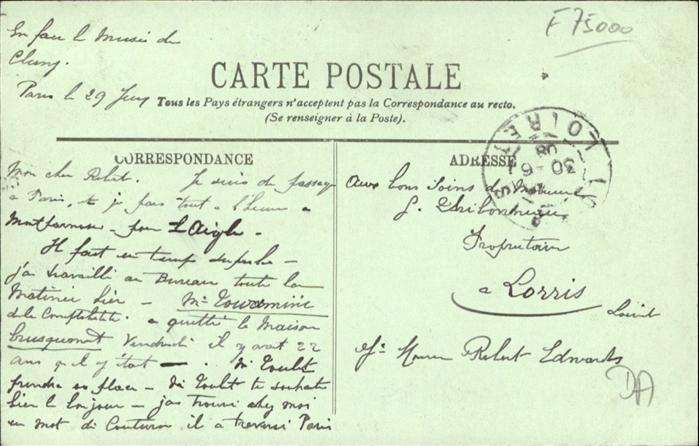 En face le Musée de
Cluny.
Paris le 29 Juin
F 75000
CARTE POSTALE
Tous les Pays étrangers n'acceptent pas la Correspondance au recto.
(Se renseigner à la Poste).
CORRESPONDANCE
Mon cher Robert. Je suis de passage
a Paris, et je pars tout a l'heure a
Montparnasse pour L'Aigle.
Il fait un temps superbe -
j'ai travaillé au Bureau toute la
Matinée hier - Mr
de la Comptabilité a quitté la Maison
brusquement Vendredi il y avait 22
ans qu'il y était - Mr Voult
prendra sa place - Mr Voult te souhaite
bien le bonjour - j'ai trouvé chez moi
un mot de Couturon il a traversé Paris
ADRESSE
LOIRET
30 -6
08
Aux bons soins de Monsieur
G.
Propriétaire
a Lorris
Loiret
Pr Monsieur Robert Edwards
DA